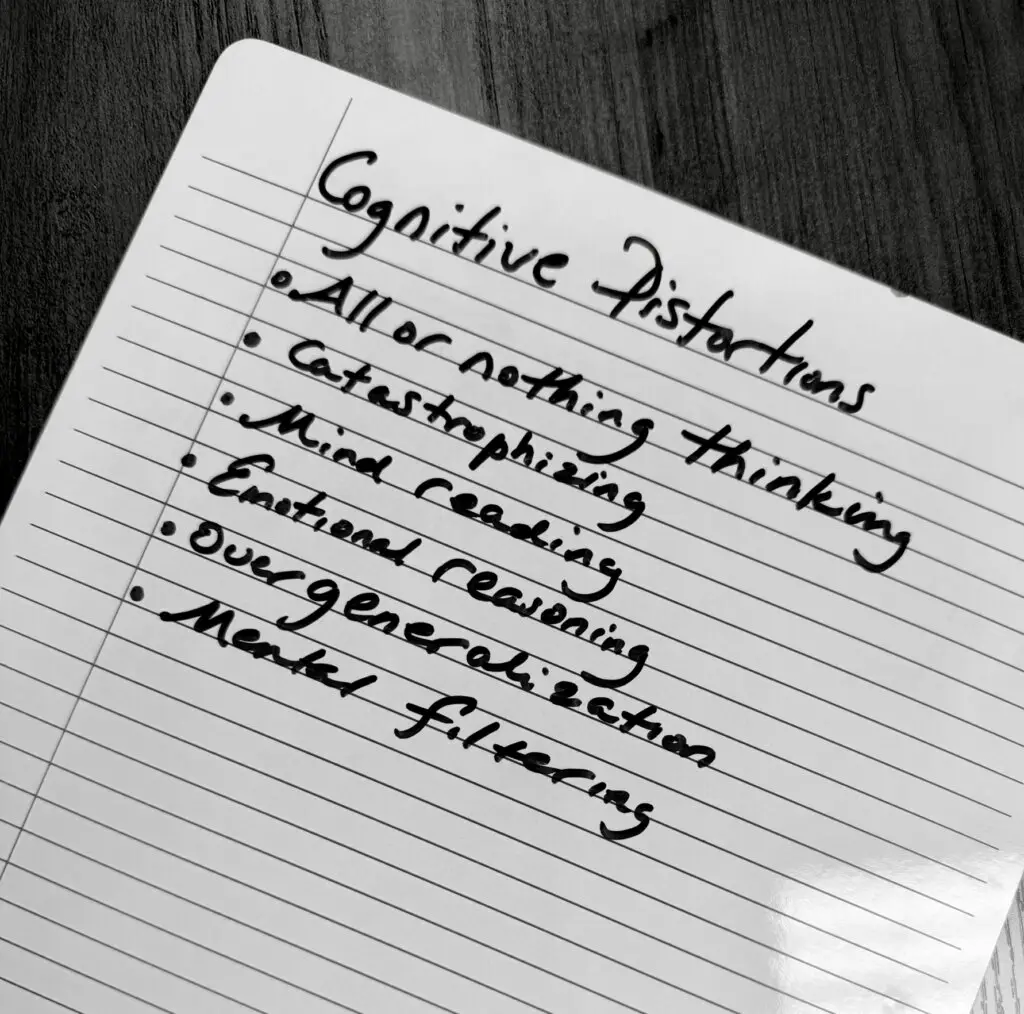 Cognitive Distortions
• All or nothing thinking
• Catastrophizing
• Mind reading
• Emotional reasoning
• Overgeneralization
• Mental filtering